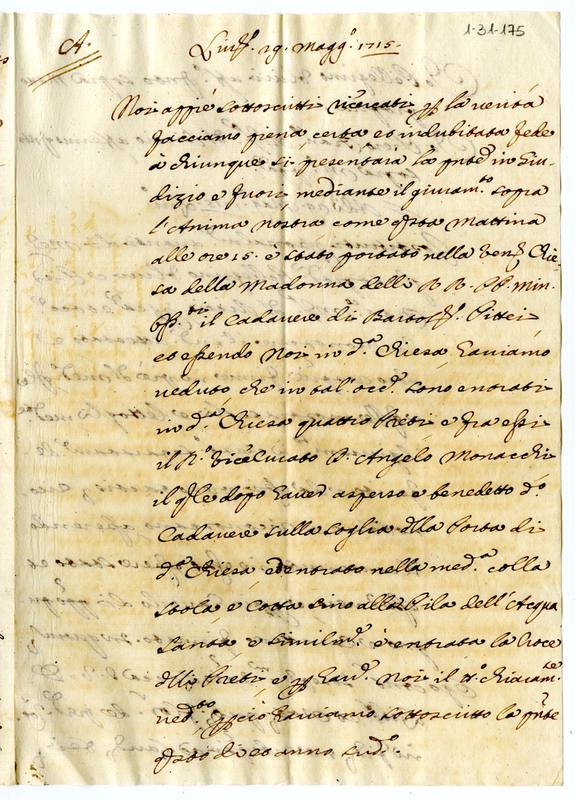 1-31-175
A.
29. Magg.º 1715.
Noi appiè sottoscritti ricercati p la verità
facciamo piena certa et indubitata fede
à chiunque si presentarà la pnte in Giu-
dizio e fuori mediante il giuram.to sopra
l'Anima nostra come qsta Mattina
alle ore 15. è stato portato nella Ven. Chie-
sa della Madonna delli RR. PP. Min.
Oss.ti il Cadavere di Pittei
et essendo Noi in d.a Chiesa haviamo
veduto, che in tal' occ.e sono entrati
in d.a Chiesa quattro Preti e fra essi
il R.o ViceCurato D. Angelo Monacchi
il qle dopo haver asperso e benedetto d.o
Cadavere sulla soglia dlla Porta di
d.a Chiesa è entrato nella med.a colla
stola e Cotta sino alla Pila dell'Acqua
Santa e similm.e è entrata la Croce
dlli Preti e p hav.e Noi il tt.o chiaram.te
ved.to pciò haviamo sottoscritto la pnte
qsto dì et anno sud.o.